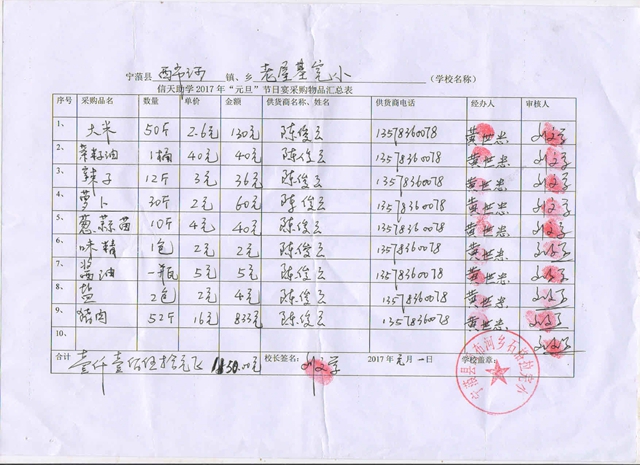 宁蒗县 西布河 镇、乡 老屋基完小 (学校名称)
信天助学2017年“元旦”节日宴采购物品汇总表
序号 采购品名 数量 单价 金额 供货商名称、姓名 供货商电话 经办人 审核人
1、 大米 50斤 2.6元 130元 陈俊云 13578360078
2、 菜籽油 1桶 40元 40元 陈俊云 13578360078
3、 辣子 12斤 3元 36元 陈俊云 13578360078
4、 萝卜 30斤 2元 60元 陈俊云 13578360078
5、 葱、蒜苗 10斤 4元 40元 陈俊云 13578360078
6、 味精 1包 2元 2元 陈俊云 13578360078
7、 酱油 一瓶 5元 5元 陈俊云 13578360078
8、 盐 2包 2元 4元 陈俊云 13578360078
9、 猪肉 52斤 16元 833元 陈俊云 13578360078
10、
合计 壹仟壹佰伍拾元正 1150.00元 校长签名: 2017年元月1日 学校盖章: